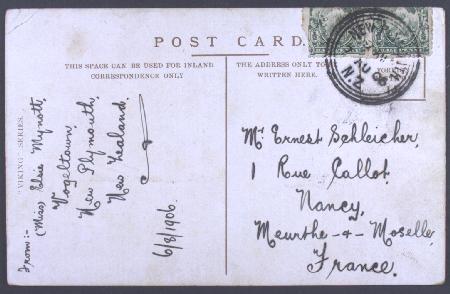 POST CARD.
THIS SPACE CAN BE USED FOR INLAND
CORRESPONDENCE ONLY
THE ADDRESS ONLY TO
WRITTEN HERE.
"VIKING" SERIES.
From:-
(Miss) Elsie Mynott,
Vogeltown,
New Plymouth,
New Zealand.
6/8/1906.
Mr Ernest Schleicher,
1 Rue Callot,
Nancy,
Meurthe-&-Moselle,
France.
NEW
AU 06
N.Z